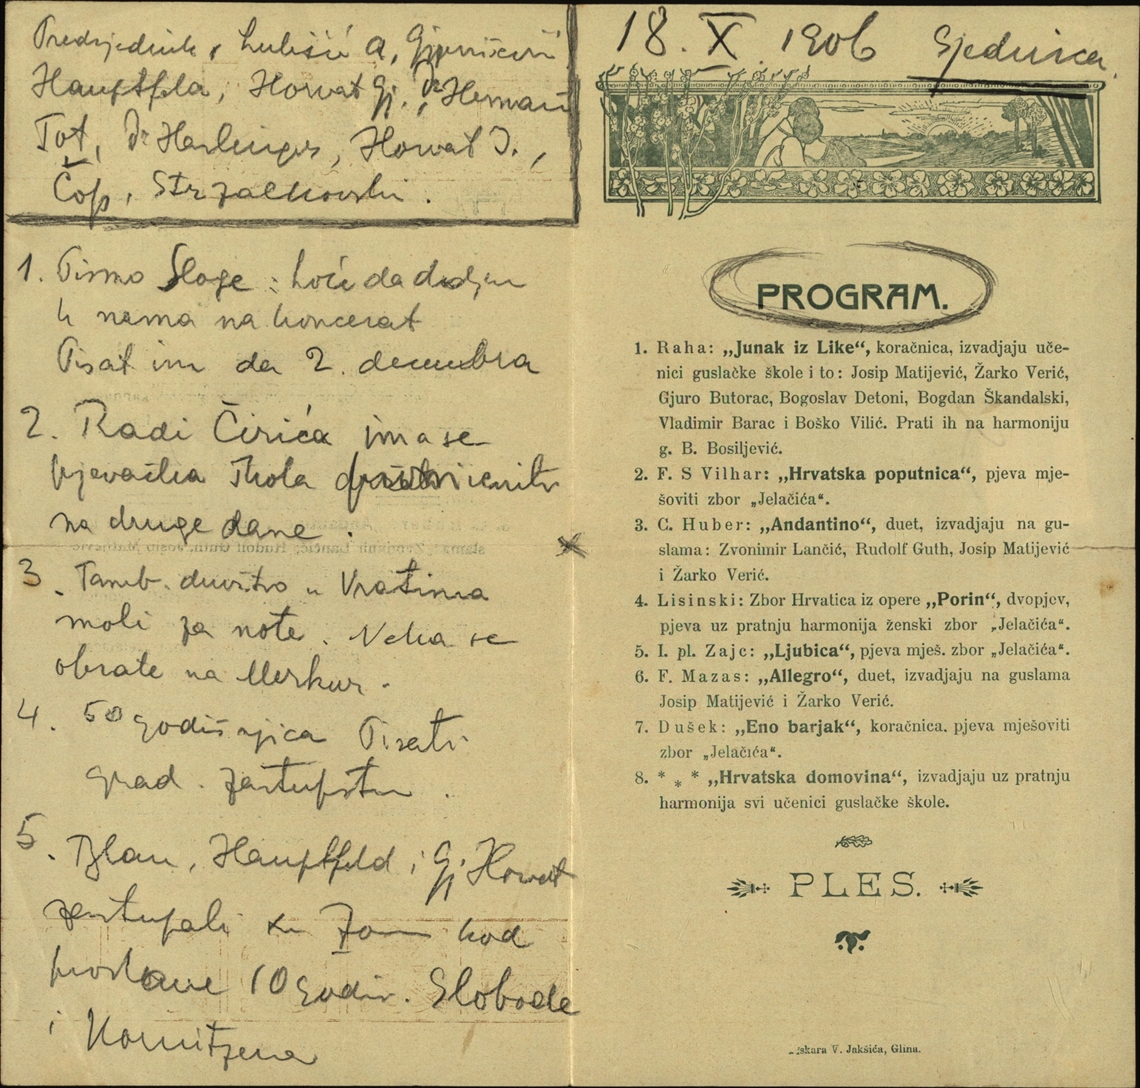 Predsjednik, Lukšić A,
Hauptfeld, Horvat Gj., Dr Heman
Tot, Dr Harlinger, Horvat I.,
Čop, Strzalkowski.
1. Pismo Sloge: hoće da dodju
k nama na koncerat
Pisat im da 2. decembra
2. Radi Čirića ima se
pjevačka škola
na druge dane.
3. Tamb. društvo u
moli za note. Neka se
obrate na Merkur.
4. 50 godišnjica Pisati
grad. zastupstvu.
5. Blau, Hauptfeld i Gj Horvat
zastupali kod
proslave 10 godiš. Slobode
i
18. X 1906 Sjednica
PROGRAM.
1. Raha: „Junak iz Like“, koračnica, izvadjaju uče-
nici guslačke škole i to: Josip Matijević, Žarko Verić,
Gjuro Butorac, Bogoslav Detoni, Bogdan Škandalski,
Vladimir Barac i Boško Vilić. Prati ih na harmoniju
g. B. Bosiljević.
2. F. S Vilhar: „Hrvatska poputnica“, pjeva mje-
šoviti zbor „Jelačića“.
3. C. Huber: „Andantino“, duet, izvadjaju na gu-
slama: Zvonimir Lančić, Rudolf Guth, Josip Matijević
i Žarko Verić.
4. Lisinski: Zbor Hrvatica iz opere „Porin“, dvopjev,
pjeva uz pratnju harmonija ženski zbor „Jelačića“.
5. I. pl. Zajc: „Ljubica“, pjeva mješ. zbor „Jelačića“.
6. F. Mazas: „Allegro“, duet, izvadjaju na guslama
Josip Matijević i Žarko Verić.
7. Dušek: „Eno barjak“, koračnica. pjeva mješoviti
zbor „Jelačića“.
8. * * * „Hrvatska domovina“, izvadjaju uz pratnju
harmonija svi učenici guslačke škole.
PLES.
skara V. Jakšića, Glina.